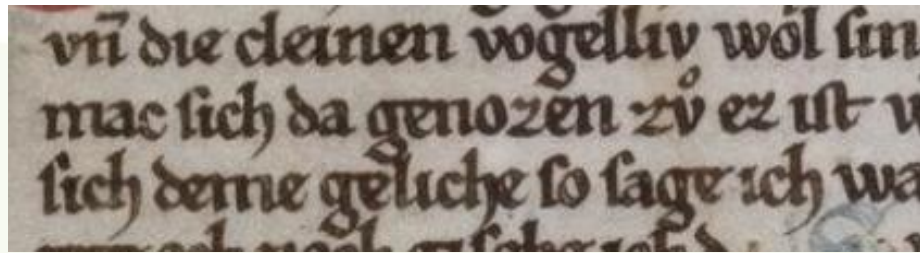 vn̄ die cleinen vogelliv wol ſin
mac ſich da genozen zvͦ ez iſt
ſich deme geliche ſo ſage ich wa